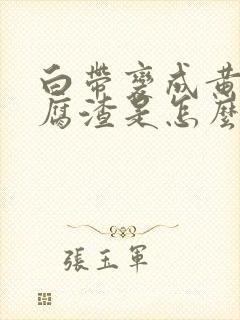 白帶變成黃
腐渣是怎麼
張玉軍